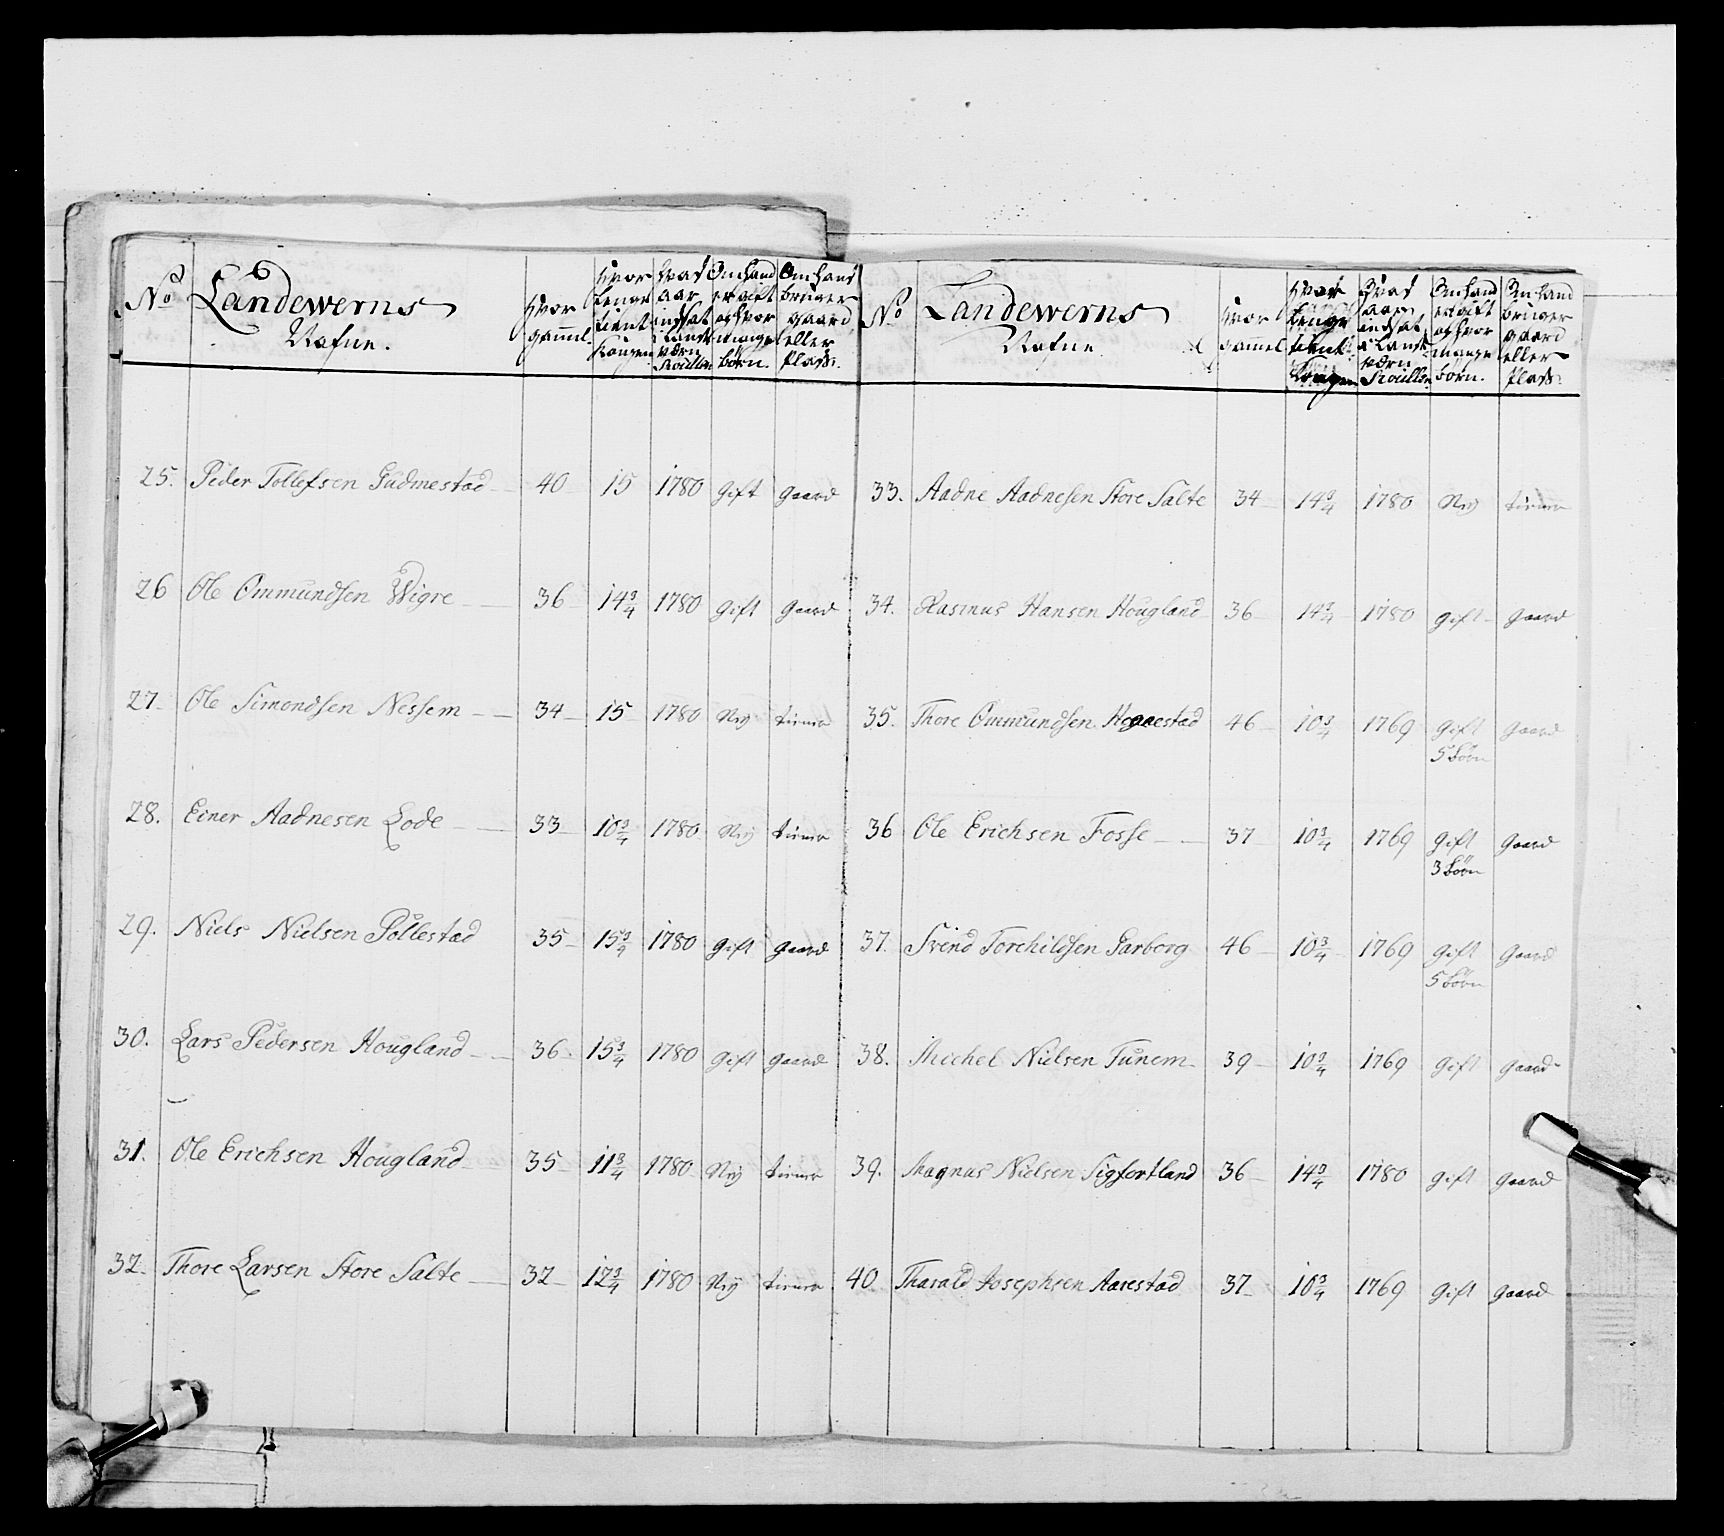 No Landewerns Nafne. Hvor gammel. Hvor lenge tient Kongen Hvad aar indsat i Land:værn Roullen Om hand er gift og hvor mange børn. Om hand bruger gaard eller Plads.
25. Peder Tollefsen Gudmestad 40 15 1780 gift gaard
26 Ole Ommundsen Wigre 36 14 3/4 1780 gift gaard
27. Ole Simondsen Nessem 34 15 1780 Nej tiener
28. Einer Aadnesen Lode 33 10 3/4 1780 Nej tiener
29. Niels Nielsen Pollestad 35 15 3/4 1780 gift gaard
30. Lars Pedersen Hougland 36 15 3/4 1780 gift gaard
31. Ole Erichsen Hougland 35 11 3/4 1780 Nej tiener
32. Thore Larsen Store Salte 32 12 3/4 1780 Nej tiener
No Landewerns Nafne Hvor gammel Hvor lenge tient Kongen Hvad aar indsat i Land værn Roullen Om hand er gift og hvor mange børn. Om hand bruger gaard eller Plads.
33. Aadne Aadnesen Store Salte 34 14 3/4 1780 Nej tiener
34. Rasmus Hansen Hougland 36 14 3/4 1780 gift gaard
35. Thore Ommundsen Hognestad 46 10 3/4 1769 gift gaard
5 børn
36 Ole Erichsen Fosse 37 10 3/4 1769 gift gaard
3 børn
37. Svend Torchildsen Garborg 46 10 3/4 1769 gift gaard
5 børn
38. Michel Nielsen Tunem 39 10 3/4 1769 gift gaard
39. Magnus Nielsen Sigfortland 36 14 3/4 1780 gift gaard
40. Tharald Josephsen Aarestad 37 10 3/4 1769 gift gaard